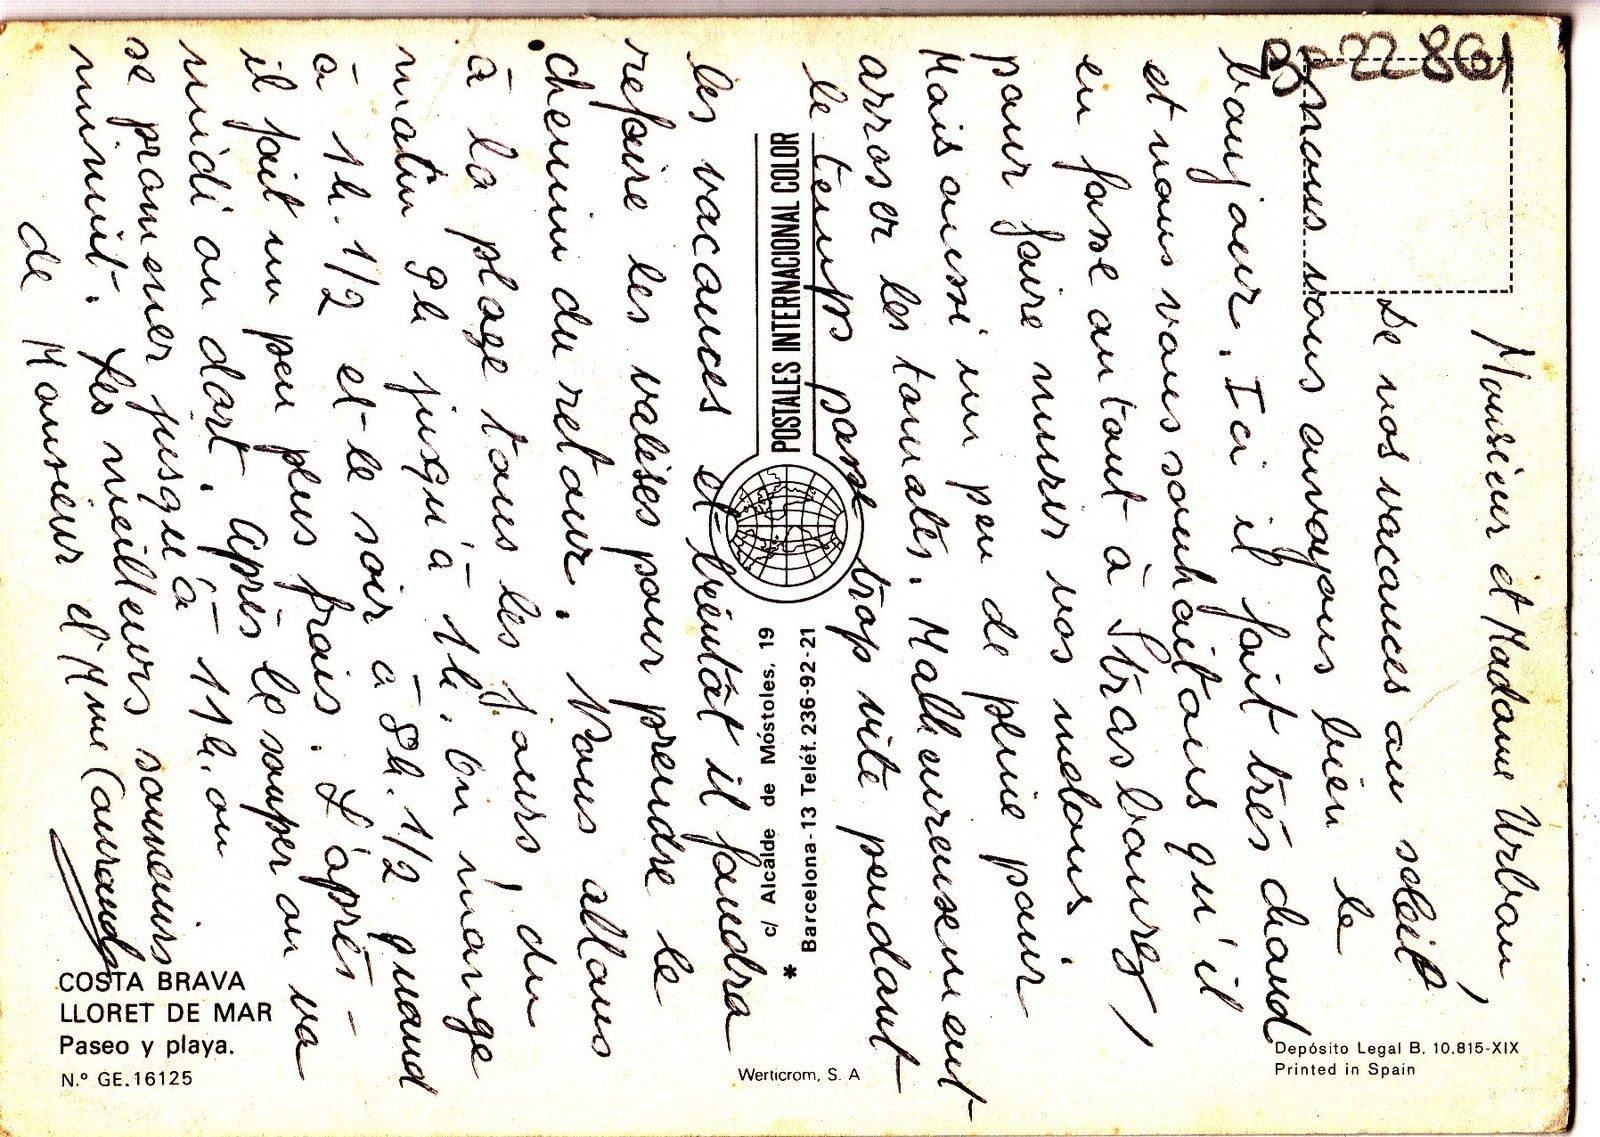 Monsieur et Madame Urban,
De nos vacances au soleil
nous vous envoyons bien le
bonjour. Ici il fait très chaud
et nous vous souhaitons qu'il
en fasse autant à Strasbourg,
pour faire murir vos melons.
Mais aussi un peu de pluie pour
arroser les tomates. Malheureusement
le temps passe trop vite pendant
les vacances et bientôt il faudra
refaire les valises pour prendre le
chemin du retour. Nous allons
à la plage tous les jours, du
matin 9h jusqu'à 1h. On mange
à 1h.1/2 et le soir à 8h.1/2 quand
il fait un peu plus frais. L'après-
midi on dort. Après le souper on va
se promener jusqu'à 11h. ou
minuit. Les meilleurs souvenirs
de Monsieur et Mme
POSTALES INTERNACIONAL COLOR
c/ Alcalde de Móstoles, 19
Barcelona-13 Teléf. 236-92-21
*
COSTA BRAVA
LLORET DE MAR
Paseo y playa.
N.º GE.16125
Werticrom, S. A
Depósito Legal B. 10.815-XIX
Printed in Spain